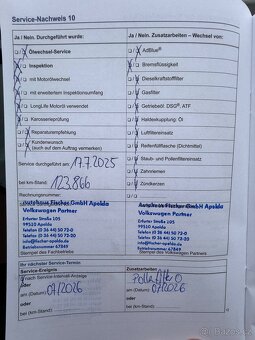 Service-Nachweis 10
Ja / Nein. Durchgeführt wurde:
Ölwechsel-Service
Inspektion
mit Motorölwechsel
mit erweitertem Inspektionsumfang
LongLife Motoröl verwendet
Karosserieprüfung
Reparaturempfehlung
Kundenwunsch
(auch auf dem Auftrag vermerken)
Service durchgeführt am: 17.7.2025
bei km-Stand: 123.866
Rechnungsnummer:
Autohaus Fischer GmbH Apolda
Volkswagen Partner
Erfurter Straße 105
99510 Apolda
Betriebsnummer: 67849
Stempel des Fachbetriebs
Ja / Nein. Zusatzarbeiten – Wechsel von:
AdBlue®
Bremsflüssigkeit
Dieselkraftstofffilter
Gasfilter
Getriebeöl: DSG®, ATF
Haldexkupplung: Öl
Luftfiltereinsatz
Reifenfüllflasche (Dichtmittel)
Staub- und Pollenfiltereinsatz
Zahnriemen
Zündkerzen
Autohaus Fischer GmbH Apolda
Volkswagen Partner
Erfurter Straße 105
99510 Apolda
Betriebsnummer: 67849
Stempel des Fachbetriebs
Ihr nächster Service-Termin
Service-Ereignis
nach Service-Intervall-Anzeige
oder
am (Datum) 07/2026
oder
bei km-Stand:
Zusatzarbeiten
am (Datum) 07/2026
oder
bei km-Stand: